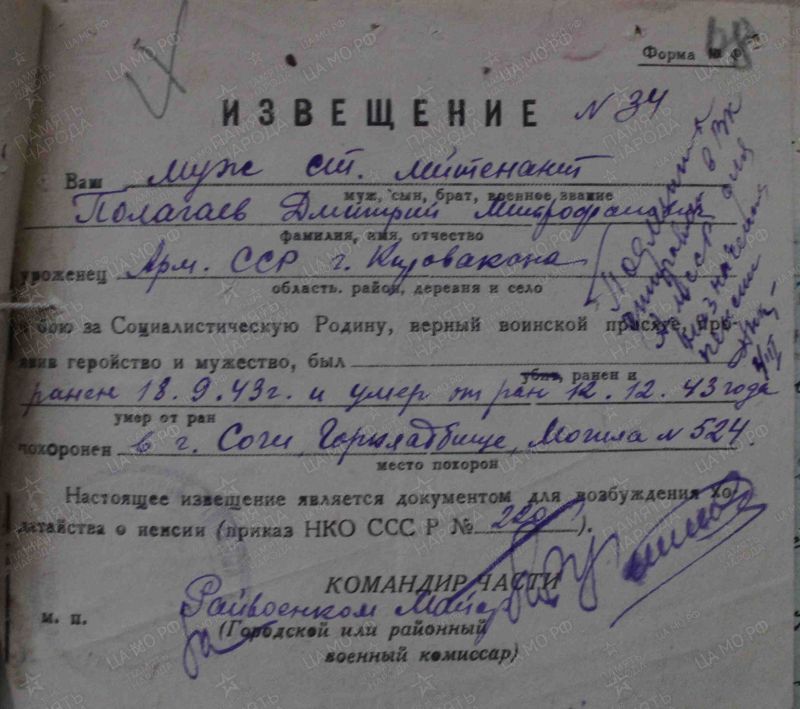 Форма №
68
ИЗВЕЩЕНИЕ N 34
Ваш муж ст. лейтенант
муж, сын, брат, военное звание
Полагаев Дмитрий Митрофанович
фамилия, имя, отчество
уроженец Арм. ССР г. Кировакона
область, район, деревня и село
в бою за Социалистическую Родину, верный воинской присяге, про-
явив геройство и мужество, был
убит, ранен и
ранен 18.9.43г. и умер от ран 12.12.43 года
умер от ран
похоронен в г. Сочи, Горкладбище, Могила N 524.
место похорон
Настоящее извещение является документом для возбуждения хо-
датайства о пенсии (приказ НКО СССР № 220).
КОМАНДИР ЧАСТИ
Райвоенком Майор
м. п.
(Городской или районный
военный комиссар)
Подлинник
отправлен в РВК
для
назначения
пенсии
ПАМЯТЬ НАРОДА
ЦА.МО.РФ